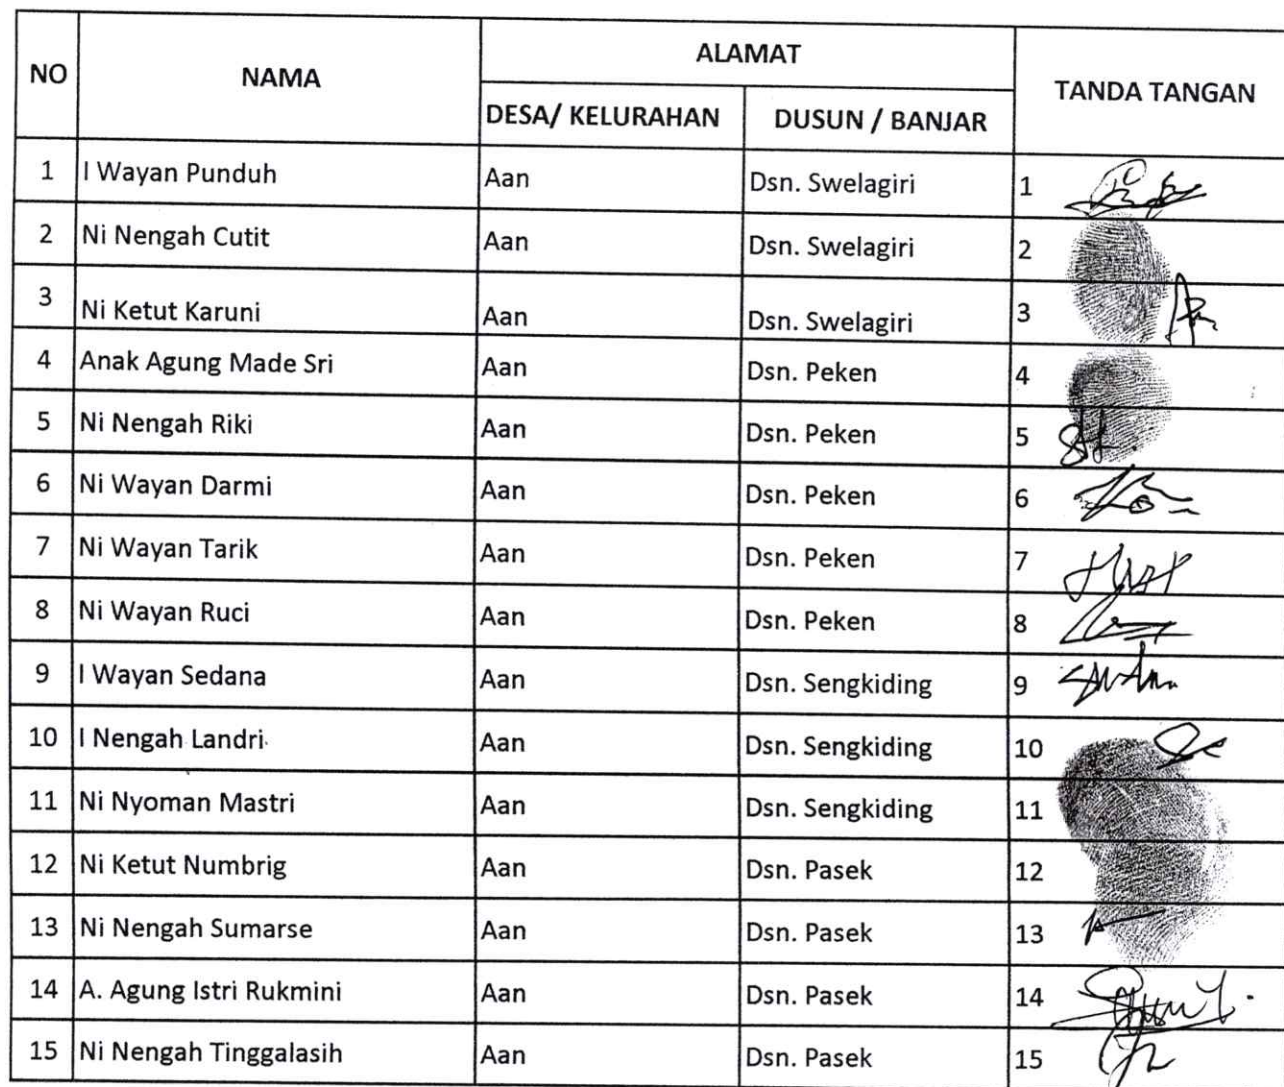 NO NAMA ALAMAT TANDA TANGAN
DESA/ KELURAHAN DUSUN / BANJAR
1 I Wayan Punduh Aan Dsn. Swelagiri 1
2 Ni Nengah Cutit Aan Dsn. Swelagiri 2
3 Ni Ketut Karuni Aan Dsn. Swelagiri 3
4 Anak Agung Made Sri Aan Dsn. Peken 4
5 Ni Nengah Riki Aan Dsn. Peken 5
6 Ni Wayan Darmi Aan Dsn. Peken 6
7 Ni Wayan Tarik Aan Dsn. Peken 7
8 Ni Wayan Ruci Aan Dsn. Peken 8
9 I Wayan Sedana Aan Dsn. Sengkiding 9
10 I Nengah Landri Aan Dsn. Sengkiding 10
11 Ni Nyoman Mastri Aan Dsn. Sengkiding 11
12 Ni Ketut Numbrig Aan Dsn. Pasek 12
13 Ni Nengah Sumarse Aan Dsn. Pasek 13
14 A. Agung Istri Rukmini Aan Dsn. Pasek 14
15 Ni Nengah Tinggalasih Aan Dsn. Pasek 15